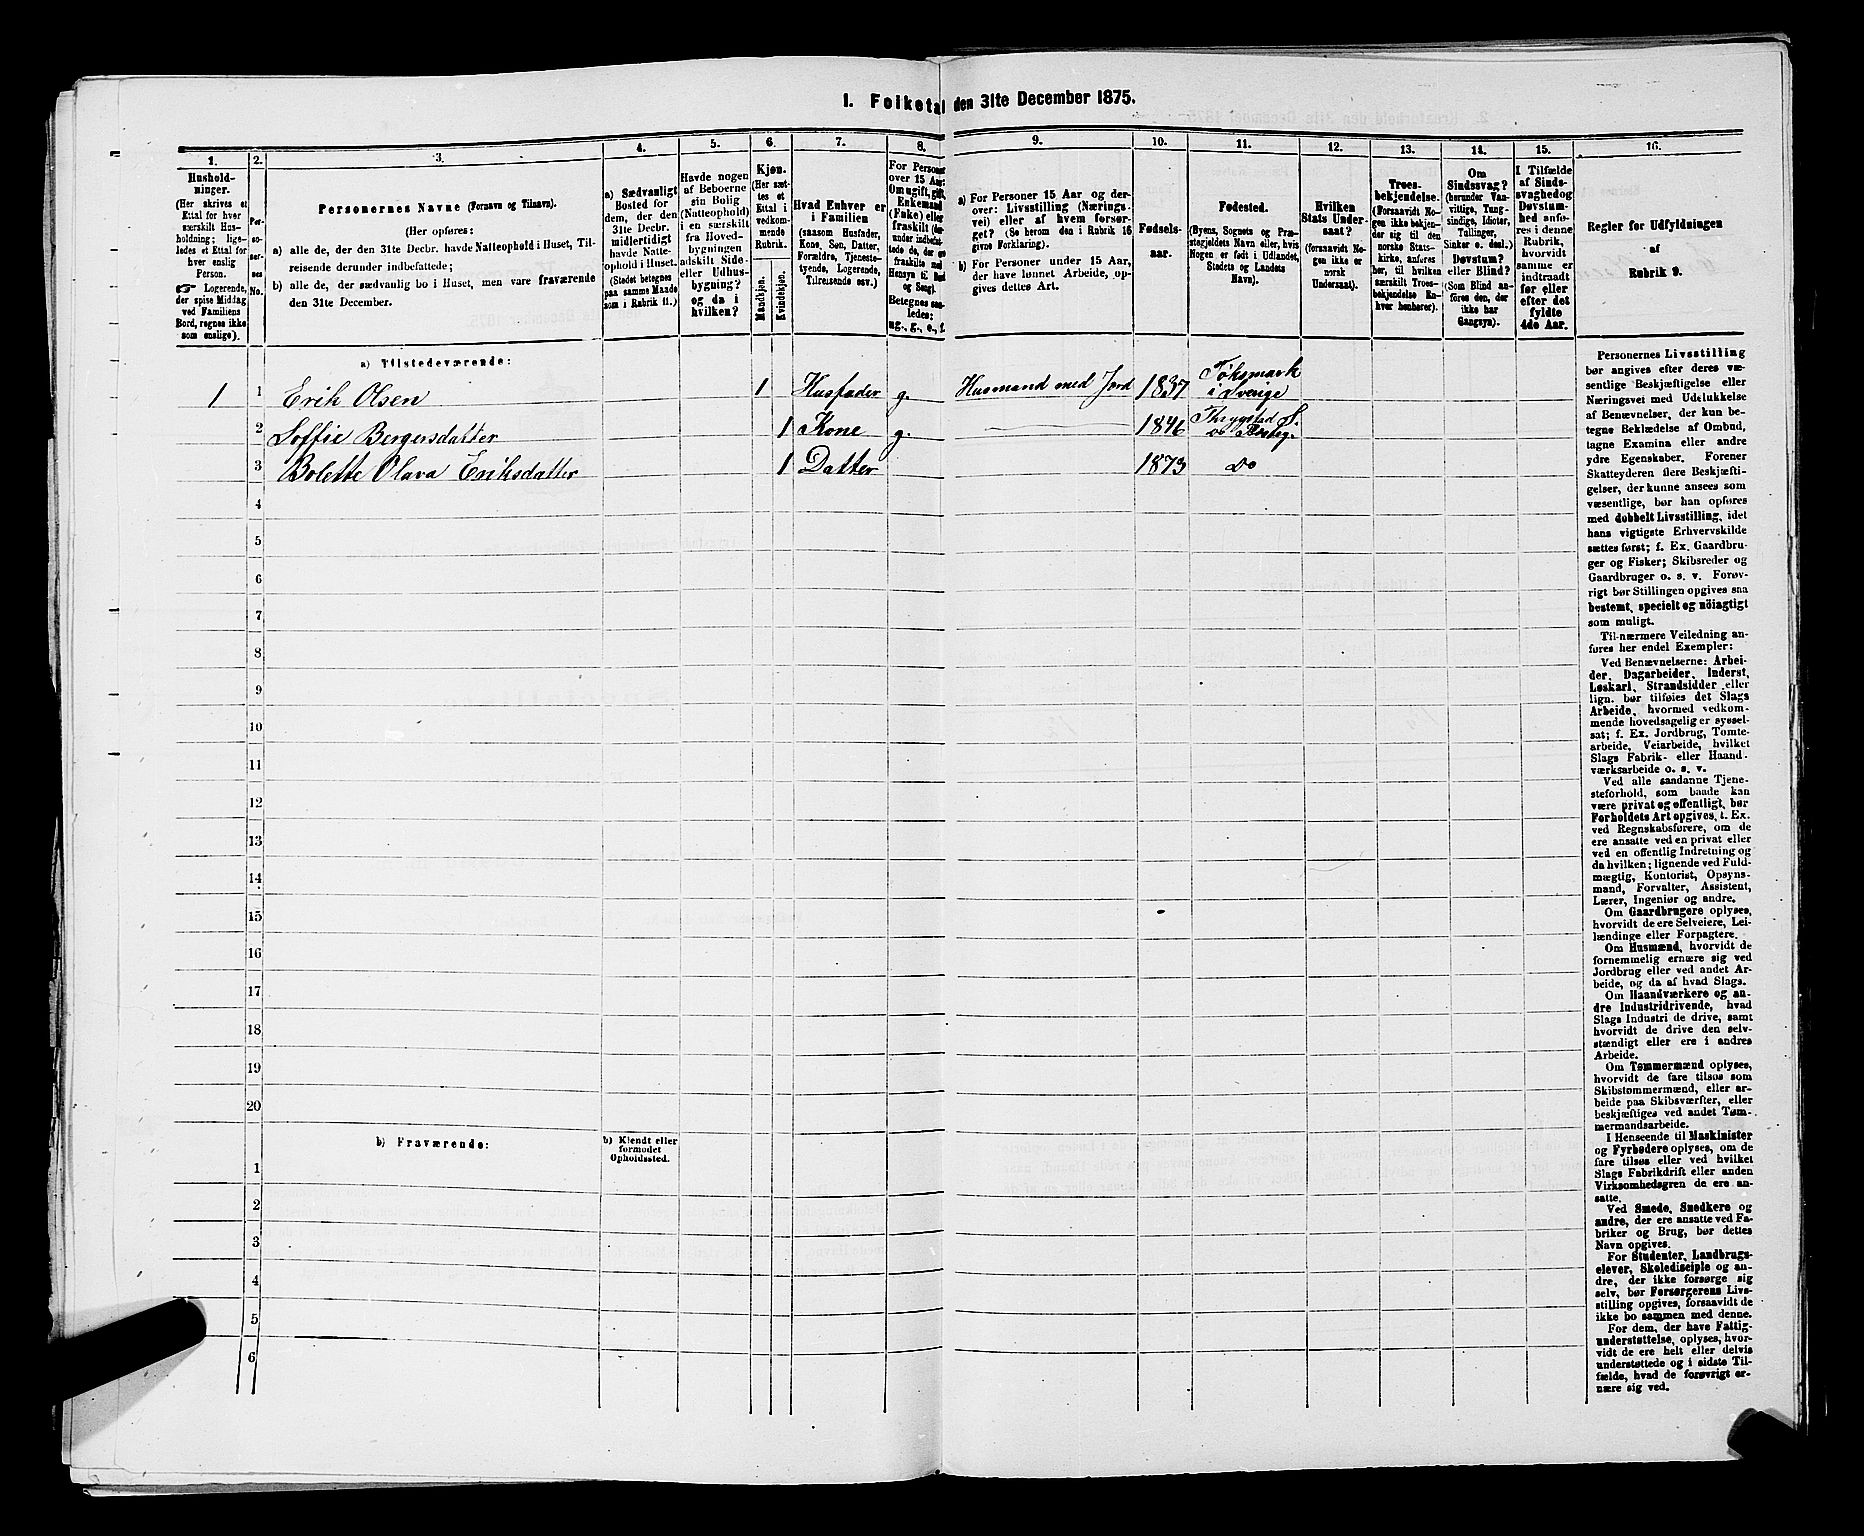 1. Folketal den 31te December 1875.
1.
2.
3.
4.
5.
6.
7.
8.
9.
10.
11.
12.
13.
14.
15.
16.
Hushold-
ninger.
(Her skrives et
Ettal for hver
særskilt Hus-
holdning; lige-
ledes et Ettal for
hver enslig
Person.
☞ Logerende,
der spise Middag
ved Familiens
Bord, regnes ikke
som enslige).
Per-
so-
ner-
nes
No.
Personernes Navne (Fornavn og Tilnavn).
(Her opføres:
a) alle de, der den 31te Decbr. havde Natteophold i Huset, Til-
reisende derunder indbefattede;
b) alle de, der sædvanlig bo i Huset, men vare fraværende
den 31te December.
a) Sædvanligt
Bosted for
dem, der den
31te Decbr.
midlertidigt
havde Natte-
ophold i Huset.
(Stedet betegnes
paa samme Maade
som i Rubrik 11.)
Havde nogen
af Beboerne
sin Bolig
(Natteophold)
i en særskilt
fra Hoved-
bygningen
adskilt Side-
eller Udhus-
bygning?
og da i
hvilken?
Kjøn.
(Her sæt-
tes et
Ettal i
vedkom-
mende
Rubrik.
Mandkjøn.
Kvindekjøn.
Hvad Enhver er
i Familien
(saasom Husfader,
Kone, Søn, Datter,
Forældre, Tjeneste-
tyende, Logerende,
Tilreisende osv.)
For Personer
over 15 Aar:
Om ugift, gift,
Enkemand
(Enke) eller
fraskilt
Betegnes saa-
ledes:
ug., g., e., f.
a) For Personer 15 Aar og der-
over: Livsstilling (Nærings-
vei) eller af hvem forsør-
get? (Se herom den i Rubrik 16
givne Forklaring).
b) For Personer under 15 Aar,
der have lønnet Arbeide, op-
gives dettes Art.
Fødsels-
aar.
Fødested.
(Byens, Sognets og Præ-
stegjeldets Navn eller, hvis
Nogen er født i Udlandet,
Stedets og Landets
Navn).
Hvilken
Stats Under-
saat?
(foraavidt No-
gen ikke er
norsk
Undersaat).
Troes-
bekjendelse.
(Forsaavidt No-
gen ikke bekjen-
der sig til den
norske Stats-
kirke, anføres
her, til hvilken
særskilt Troes-
bekjendelse En-
hver henhører).
Om
Sindssvag?
(herunder Van-
vittige, Tung-
sindige, Idioter,
Tullinger,
Sinker o. desl.)
Døvstum?
eller Blind?
(Som Blind an-
føres den, der
ikke har
Gangsyn).
I Tilfælde
af Sinds-
svaghed og
Døvstum-
hed anfø-
res i denne
Rubrik,
hvorvidt
samme er
indtraadt
før eller
efter det
fyldte
4de Aar.
Regler for Udfyldningen
af
Rubrik 9.
a) Tilstedeværende:
1 1 Erik Olsen 1 Husfader g. Husmand med Jord 1837 Töksmark
i Sverige
2 Soffie Bergersdatter 1 Kone g. 1846 Thrygstad S.
3 Bolette Olava Eriksdatter 1 Datter 1873 Do
4
5
6
7
8
9
10
11
12
13
14
15
16
17
18
19
20
b) Fraværende:
b) Kjendt eller
formodet
Opholdssted.
1
2
3
4
5
6
Personernes Livsstilling
bør angives efter deres væ-
sentlige Beskjæftigelse eller
Næringsvei med Udelukkelse
af Benævnelser, der kun be-
tegne Beklædelse af Ombud,
tagne Examina eller andre
ydre Egenskaber. Forener
Skatteyderen flere Beskjæfti-
gelser, der kunne ansees som
væsentlige, bør han opføres
med dobbelt Livsstilling, idet
hans vigtigste Erhvervskilde
sættes først; f. Ex. Gaardbru-
ger og Fisker; Skibsreder og
Gaardbruger o. s. v. Forøv-
rigt bør Stillingen opgives saa
bestemt, specielt og nöiagtigt
som muligt.
Til nærmere Veiledning an-
føres her endel Exempler:
Ved Benævnelserne: Arbei-
der, Dagarbeider, Inderst,
Løskarl, Strandsidder eller
lign. bør tilføies det Slags
Arbeide, hvormed vedkom-
mende hovedsagelig er syssel-
sat; f. Ex. Jordbrug, Tomte-
arbeide, Veiarbeide, hvilket
Slags Fabrik- eller Haand-
værksarbeide o. s. v.
Ved alle saadanne Tjene-
steforhold, som baade kan
være privat og offentligt, bør
Forholdets Art opgives, t. Ex.
ved Regnskabsførere, om de
ere ansatte ved en privat eller
ved en offentlig Indretning og
da hvilken; lignende ved Fuld-
mægtig, Kontorist, Opsyns-
mand, Forvalter, Assistent,
Lærer, Ingeniør og andre.
Om Gaardbrugere oplyses,
hvorvidt de ere Selveiere, Lei-
lændinge eller Forpagtere.
Om Husmænd, hvorvidt de
fornemmelig ernære sig ved
Jordbrug eller ved andet Ar-
beide, og da af hvad Slags.
Om Haandværkere og an-
dre Industridrivende, hvad
Slags Industri de drive, samt
hvorvidt de drive den selv-
stændigt eller ere i andres
Arbeide.
Om Tømmermænd oplyses,
hvorvidt de fare tilsøs som
Skibstømmermænd, eller ar-
beide paa Skibsværfter, eller
beskjæftiges ved andet Tøm-
mermandsarbeide.
I Henseende til Maskinister
og Fyrbødere oplyses, om de
fare tilsøs eller ved hvilket
Slags Fabrikdrift eller anden
Virksomhedsgren de ere an-
satte.
Ved Smede, Snedkere og
andre, der ere ansatte ved Fa-
briker og Brug, bør dettes
Navn opgives.
For Studenter, Landbrugs-
elever, Skoledisciple og an-
dre, der ikke forsørge sig
selv, bør Forsørgerens Livs-
stilling opgives, forsaavidt de
ikke bo sammen med denne.
For dem, der have Fattig-
understøttelse, oplyses, hvor-
vidt de ere helt eller delvis
understøttede og i sidste Til-
fælde, hvad de forøvrigt er-
nære sig ved.